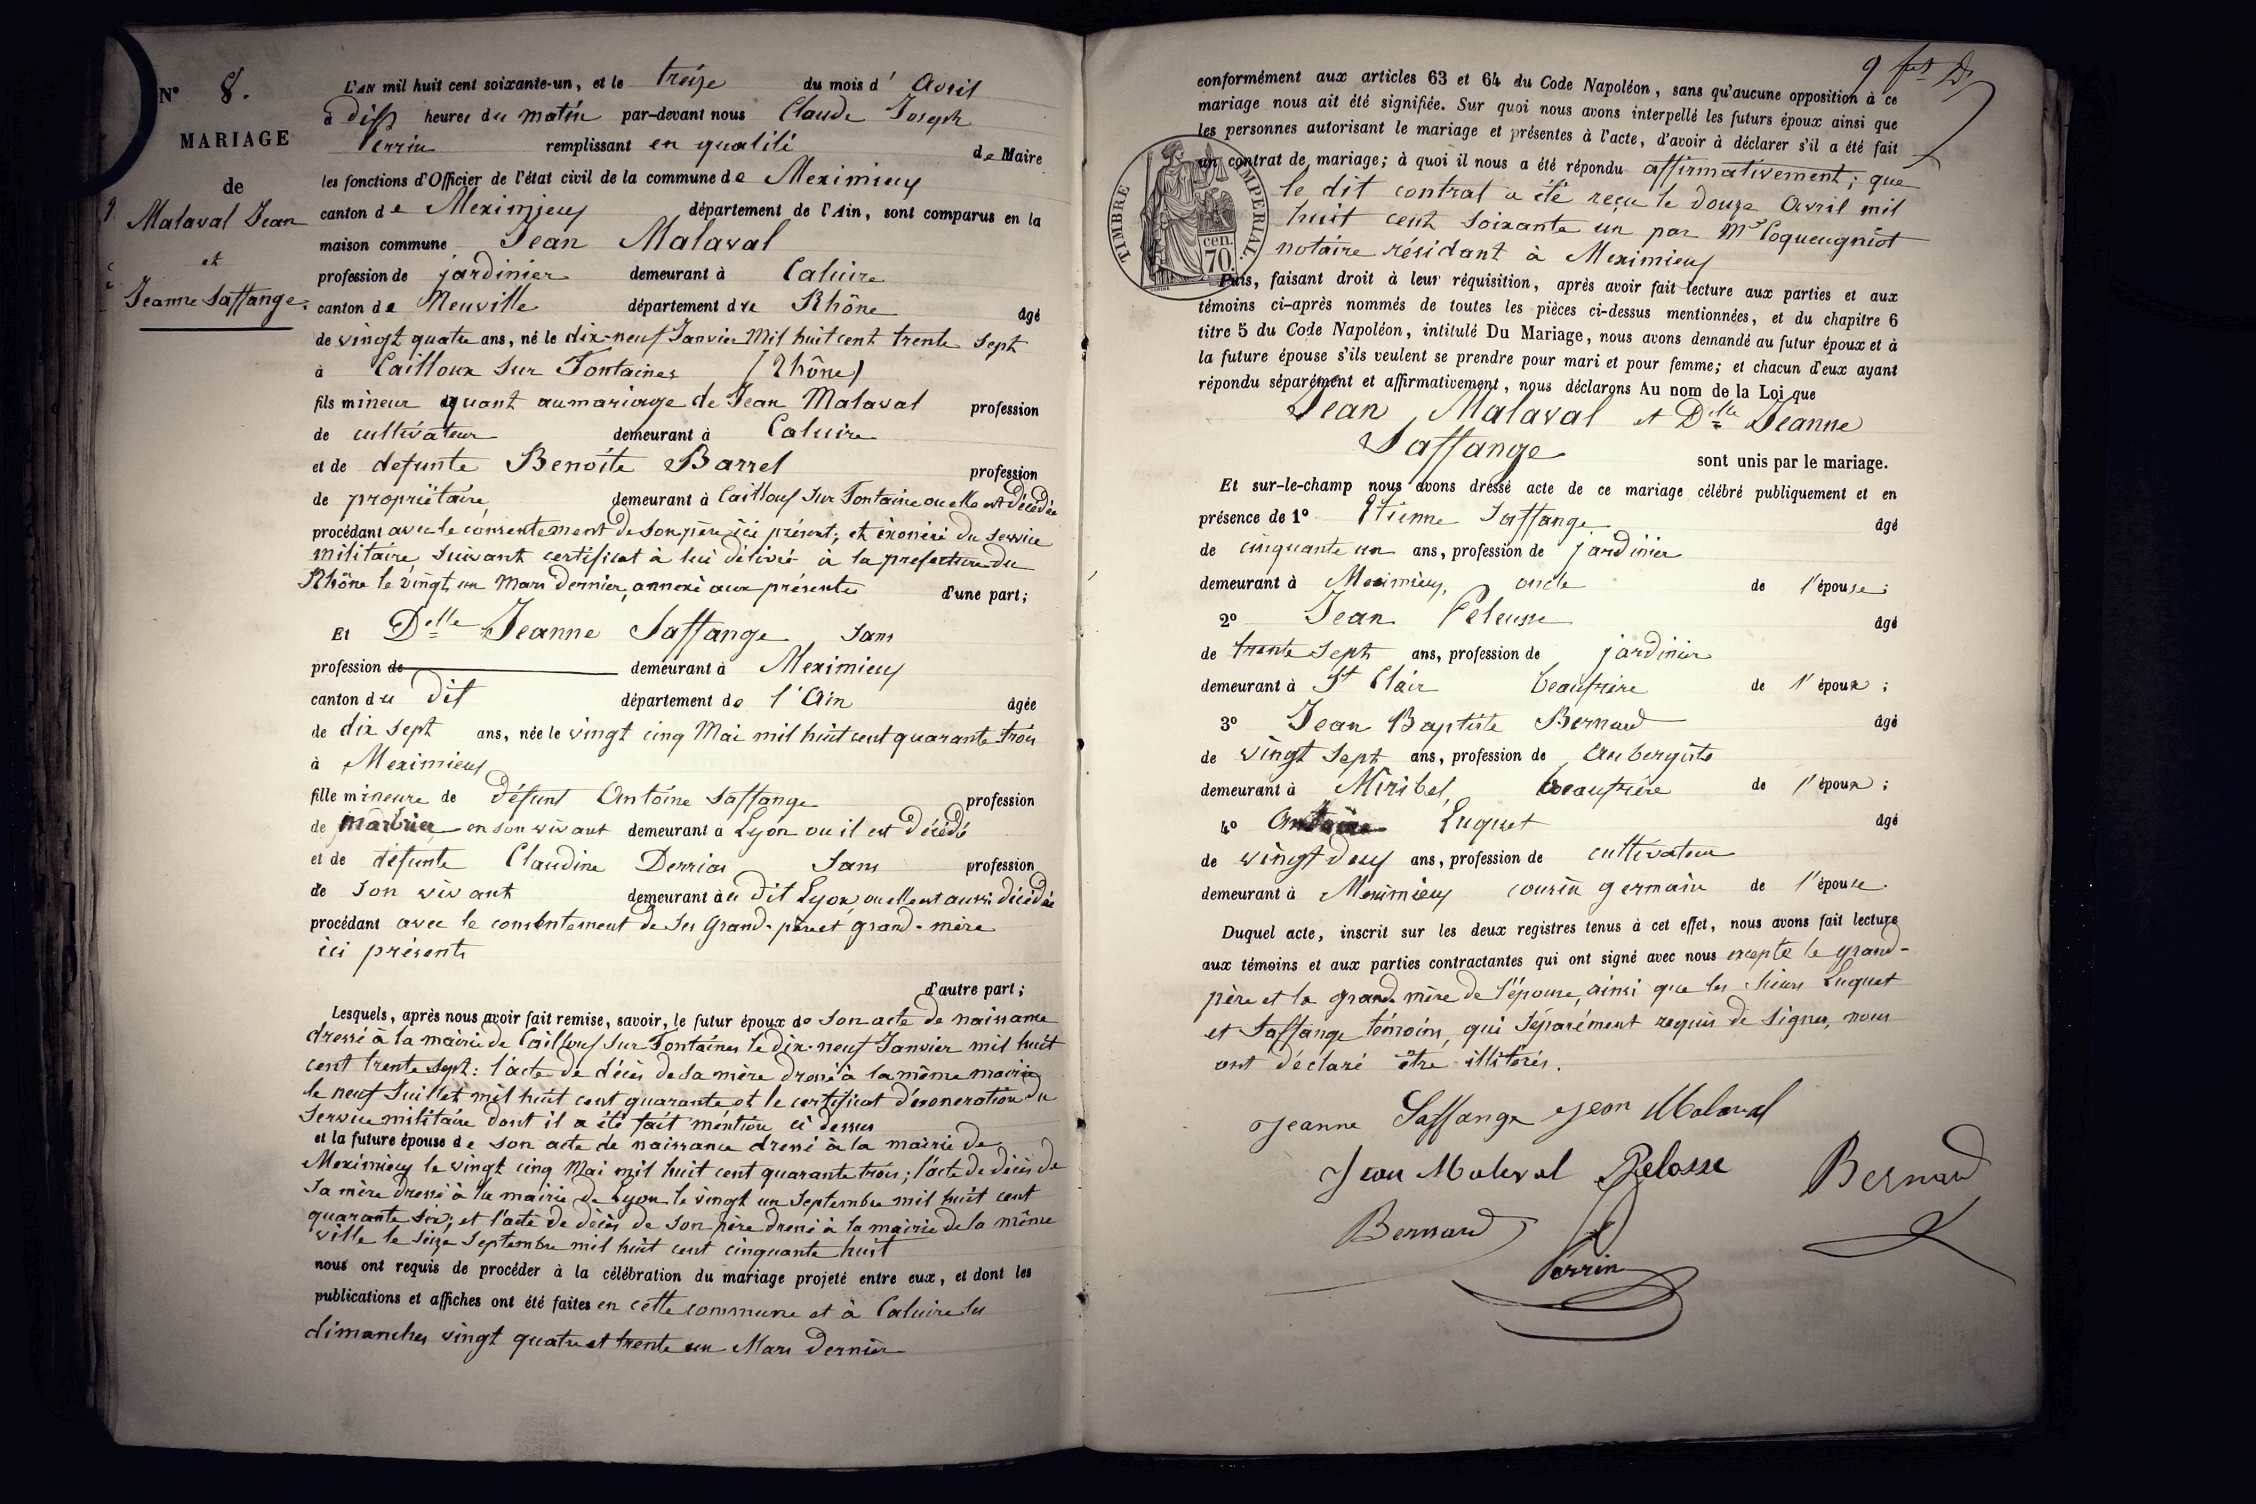 N° 8.
MARIAGE
de
Malaval Jean
et
Jeanne Saffange.
L'AN mil huit cent soixante-un, et le treize du mois d'Avril
à dix heures du matin par-devant nous Claude Joseph
Perrin remplissant en qualité de Maire
les fonctions d'Officier de l'état civil de la commune de Meximieux
canton de Meximieux département de l'Ain, sont comparus en la
maison commune Jean Malaval
profession de jardinier demeurant à Caluire
canton de Neuville département du Rhône âgé
de vingt quatre ans, né le dix-neuf Janvier Mil huit cent trente sept
à Cailloux sur Fontaines (Rhône)
fils mineur quant au mariage de Jean Malaval profession
de cultivateur demeurant à Caluire
et de defunte Benoite Barrel profession
de propriétaire, demeurant à Cailloux sur Fontaine ou elle est décédée
procédant avec le consentement de son père ici présent; et éxonéré du service
militaire suivant certificat à lui délivré à la prefecture du
Rhône le vingt un Mars dernier, annexé aux présentes d'une part;
Et Delle Jeanne Saffange Sans
profession de demeurant à Meximieux
canton du dit département de l'Ain âgée
de dix sept ans, née le vingt cinq Mai mil huit cent quarante trois
à Meximieux
fille mineure de défunt Antoine Saffange profession
de marbrier en son vivant demeurant à Lyon ou il est décédé
et de défunte Claudine Derrias Sans profession
de son vivant demeurant au dit Lyon ou elle est aussi décédée
procédant avec le consentement de ses Grand-père et grand-mère
ici présents
d'autre part;
Lesquels, après nous avoir fait remise, savoir, le futur époux de son acte de naissance
dressé à la mairie de Cailloux sur Fontaines le dix-neuf Janvier mil huit
cent trente sept: l'acte de décès de sa mère dressé à la même mairie
le neuf Juillet mil huit cent quarante et le certificat d'éxoneration du
service militaire dont il a été fait méntion ci dessus
et la future épouse de son acte de naissance dressé à la mairie de
Meximieux le vingt cinq Mai mil huit cent quarante trois; l'acte de décès de
sa mère dressé à la mairie de Lyon le vingt un Septembre mil huit cent
quarante six; et l'acte de décès de son père dressé à la mairie de la même
ville le seize Septembre mil huit cent cinquante huit
nous ont requis de procéder à la célébration du mariage projeté entre eux, et dont les
publications et affiches ont été faites en cette commune et à Caluire les
dimanches vingt quatre et trente un Mars dernier
9
conformément aux articles 63 et 64 du Code Napoléon, sans qu'aucune opposition à ce
mariage nous ait été signifiée. Sur quoi nous avons interpellé les futurs époux ainsi que
les personnes autorisant le mariage et présentes à l'acte, d'avoir à déclarer s'il a été fait
un contrat de mariage; à quoi il nous a été répondu affirmativement; que
le dit contrat a été reçu le douze Avril mil
huit cent soixante un par Me Coqueugniot
notaire résidant à Meximieux
TIMBRE IMPERIAL.
cen.
70.
Puis, faisant droit à leur réquisition, après avoir fait lecture aux parties et aux
témoins ci-après nommés de toutes les pièces ci-dessus mentionnées, et du chapitre 6
titre 5 du Code Napoléon, intitulé Du Mariage, nous avons demandé au futur époux et à
la future épouse s'ils veulent se prendre pour mari et pour femme; et chacun d'eux ayant
répondu séparément et affirmativement, nous déclarons Au nom de la Loi que
Jean Malaval et Delle Jeanne
Saffange sont unis par le mariage.
Et sur-le-champ nous avons dressé acte de ce mariage célébré publiquement et en
présence de 1° Etienne Saffange âgé
de cinquante un ans, profession de jardinier
demeurant à Meximieux, oncle de l'épouse;
2° Jean Peleusse âgé
de trente sept ans, profession de jardinier
demeurant à St Clair beaufrère de l'époux;
3° Jean Baptiste Bernard âgé
de vingt sept ans, profession de Aubergiste
demeurant à Miribel, beaufrère de l'époux;
4° Antoine Luquet âgé
de vingt deux ans, profession de cultivateur
demeurant à Meximieux cousin germain de l'épouse.
Duquel acte, inscrit sur les deux registres tenus à cet effet, nous avons fait lecture
aux témoins et aux parties contractantes qui ont signé avec nous excepté le grand-
père et la grand mère de l'épouse, ainsi que les sieurs Luquet
et Saffange témoins, qui séparément requis de signer, nous
ont déclaré être illitérés.
Jeanne Saffange Jean Malaval
Jean Malaval Pelosse Bernard
Bernard
Perrin